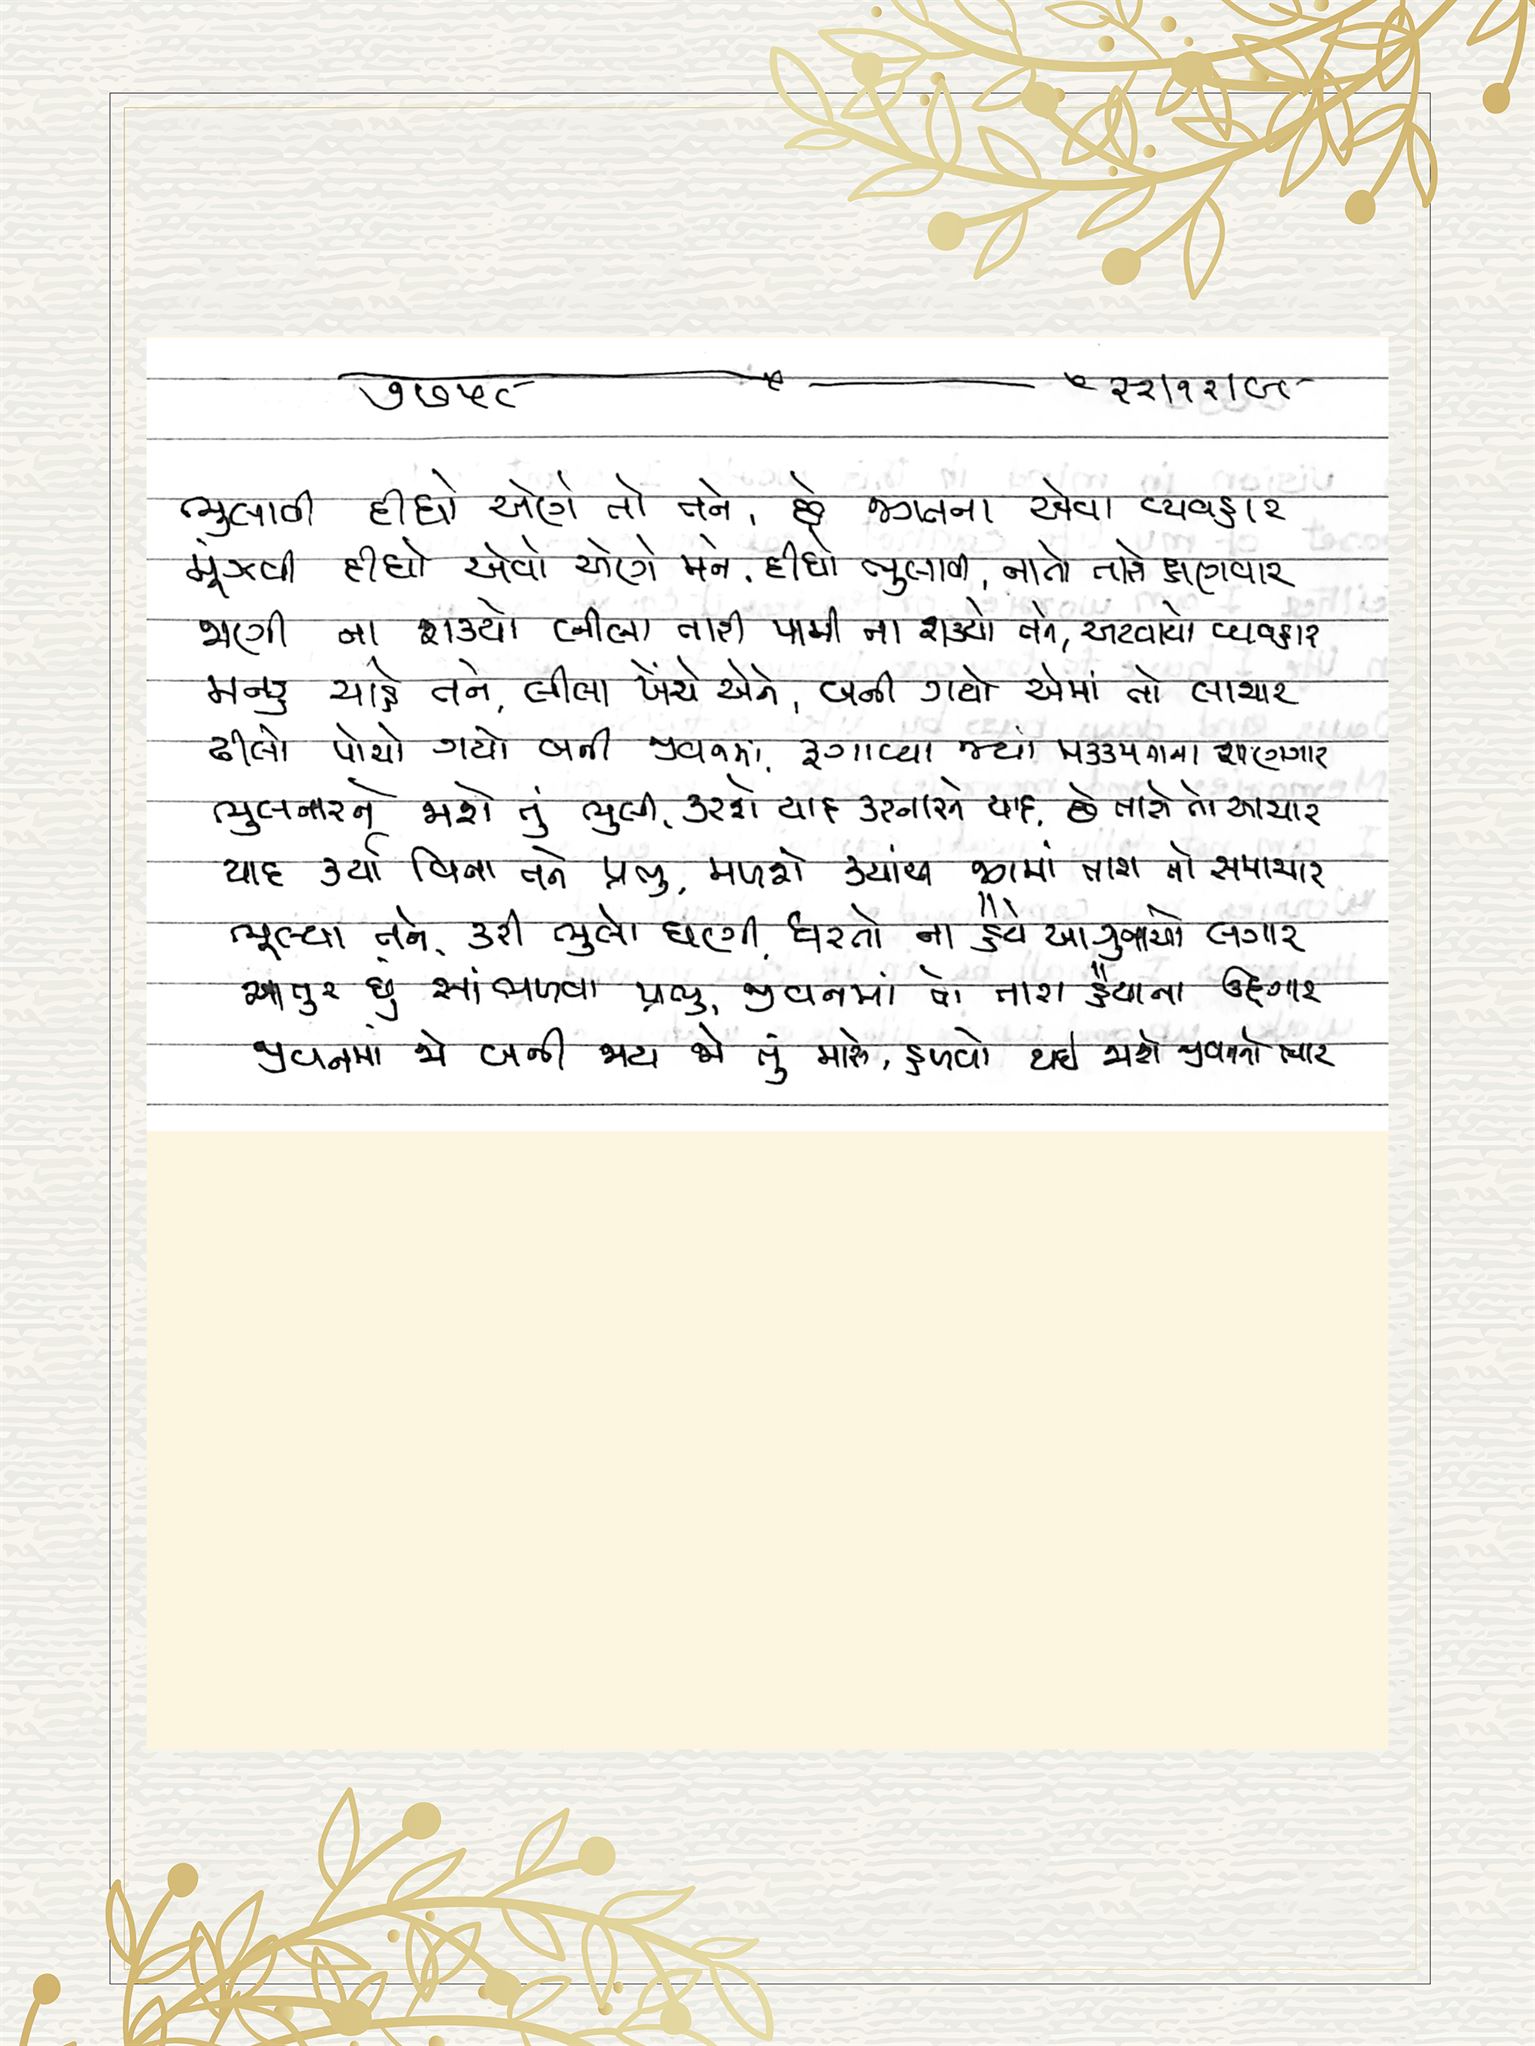 ૭૭૫૯ ૨૨/૧૨/૯૮
ભુલાવી દીધો એણે તો તને, છે જગતના એવા વ્યવહાર
મૂંઝવી દીધો એવો એણે મને, દીધો ભુલાવી, નાતો તારો ક્ષણવાર
જાણી ના શક્યો લીલા તારી પામી ના શક્યો તને, અટવાયો વ્યવહાર
મનડુ ચાહે તને, લીલા ખેંચે એને, બની ગયો એમાં તો લાચાર
ઢીલો પોચો ગયો બની જીવનમાં, રગાવ્યા જ્યાં શણગાર
ભુલનારને જાશે તું ભુલી, કરશે યાદ કરનારને યાદ, છે તારો તો આચાર
યાદ કર્યા વિના તને પ્રભુ, મળશે ક્યાંથી જગમાં તારા તો સમાચાર
ભૂલ્યા તને, કરી ભુલો ઘણી, ધરતો ના હૈયે આ ગુનાઓ લગાર
આતુર છું સાંભળવા પ્રભુ, જીવનમાં તો તારા હૈયાના ઉદ્દગાર
જીવનમાં જો બની જાય જો તું મારો, હળવો થઈ જાશે જીવનનો ભાર